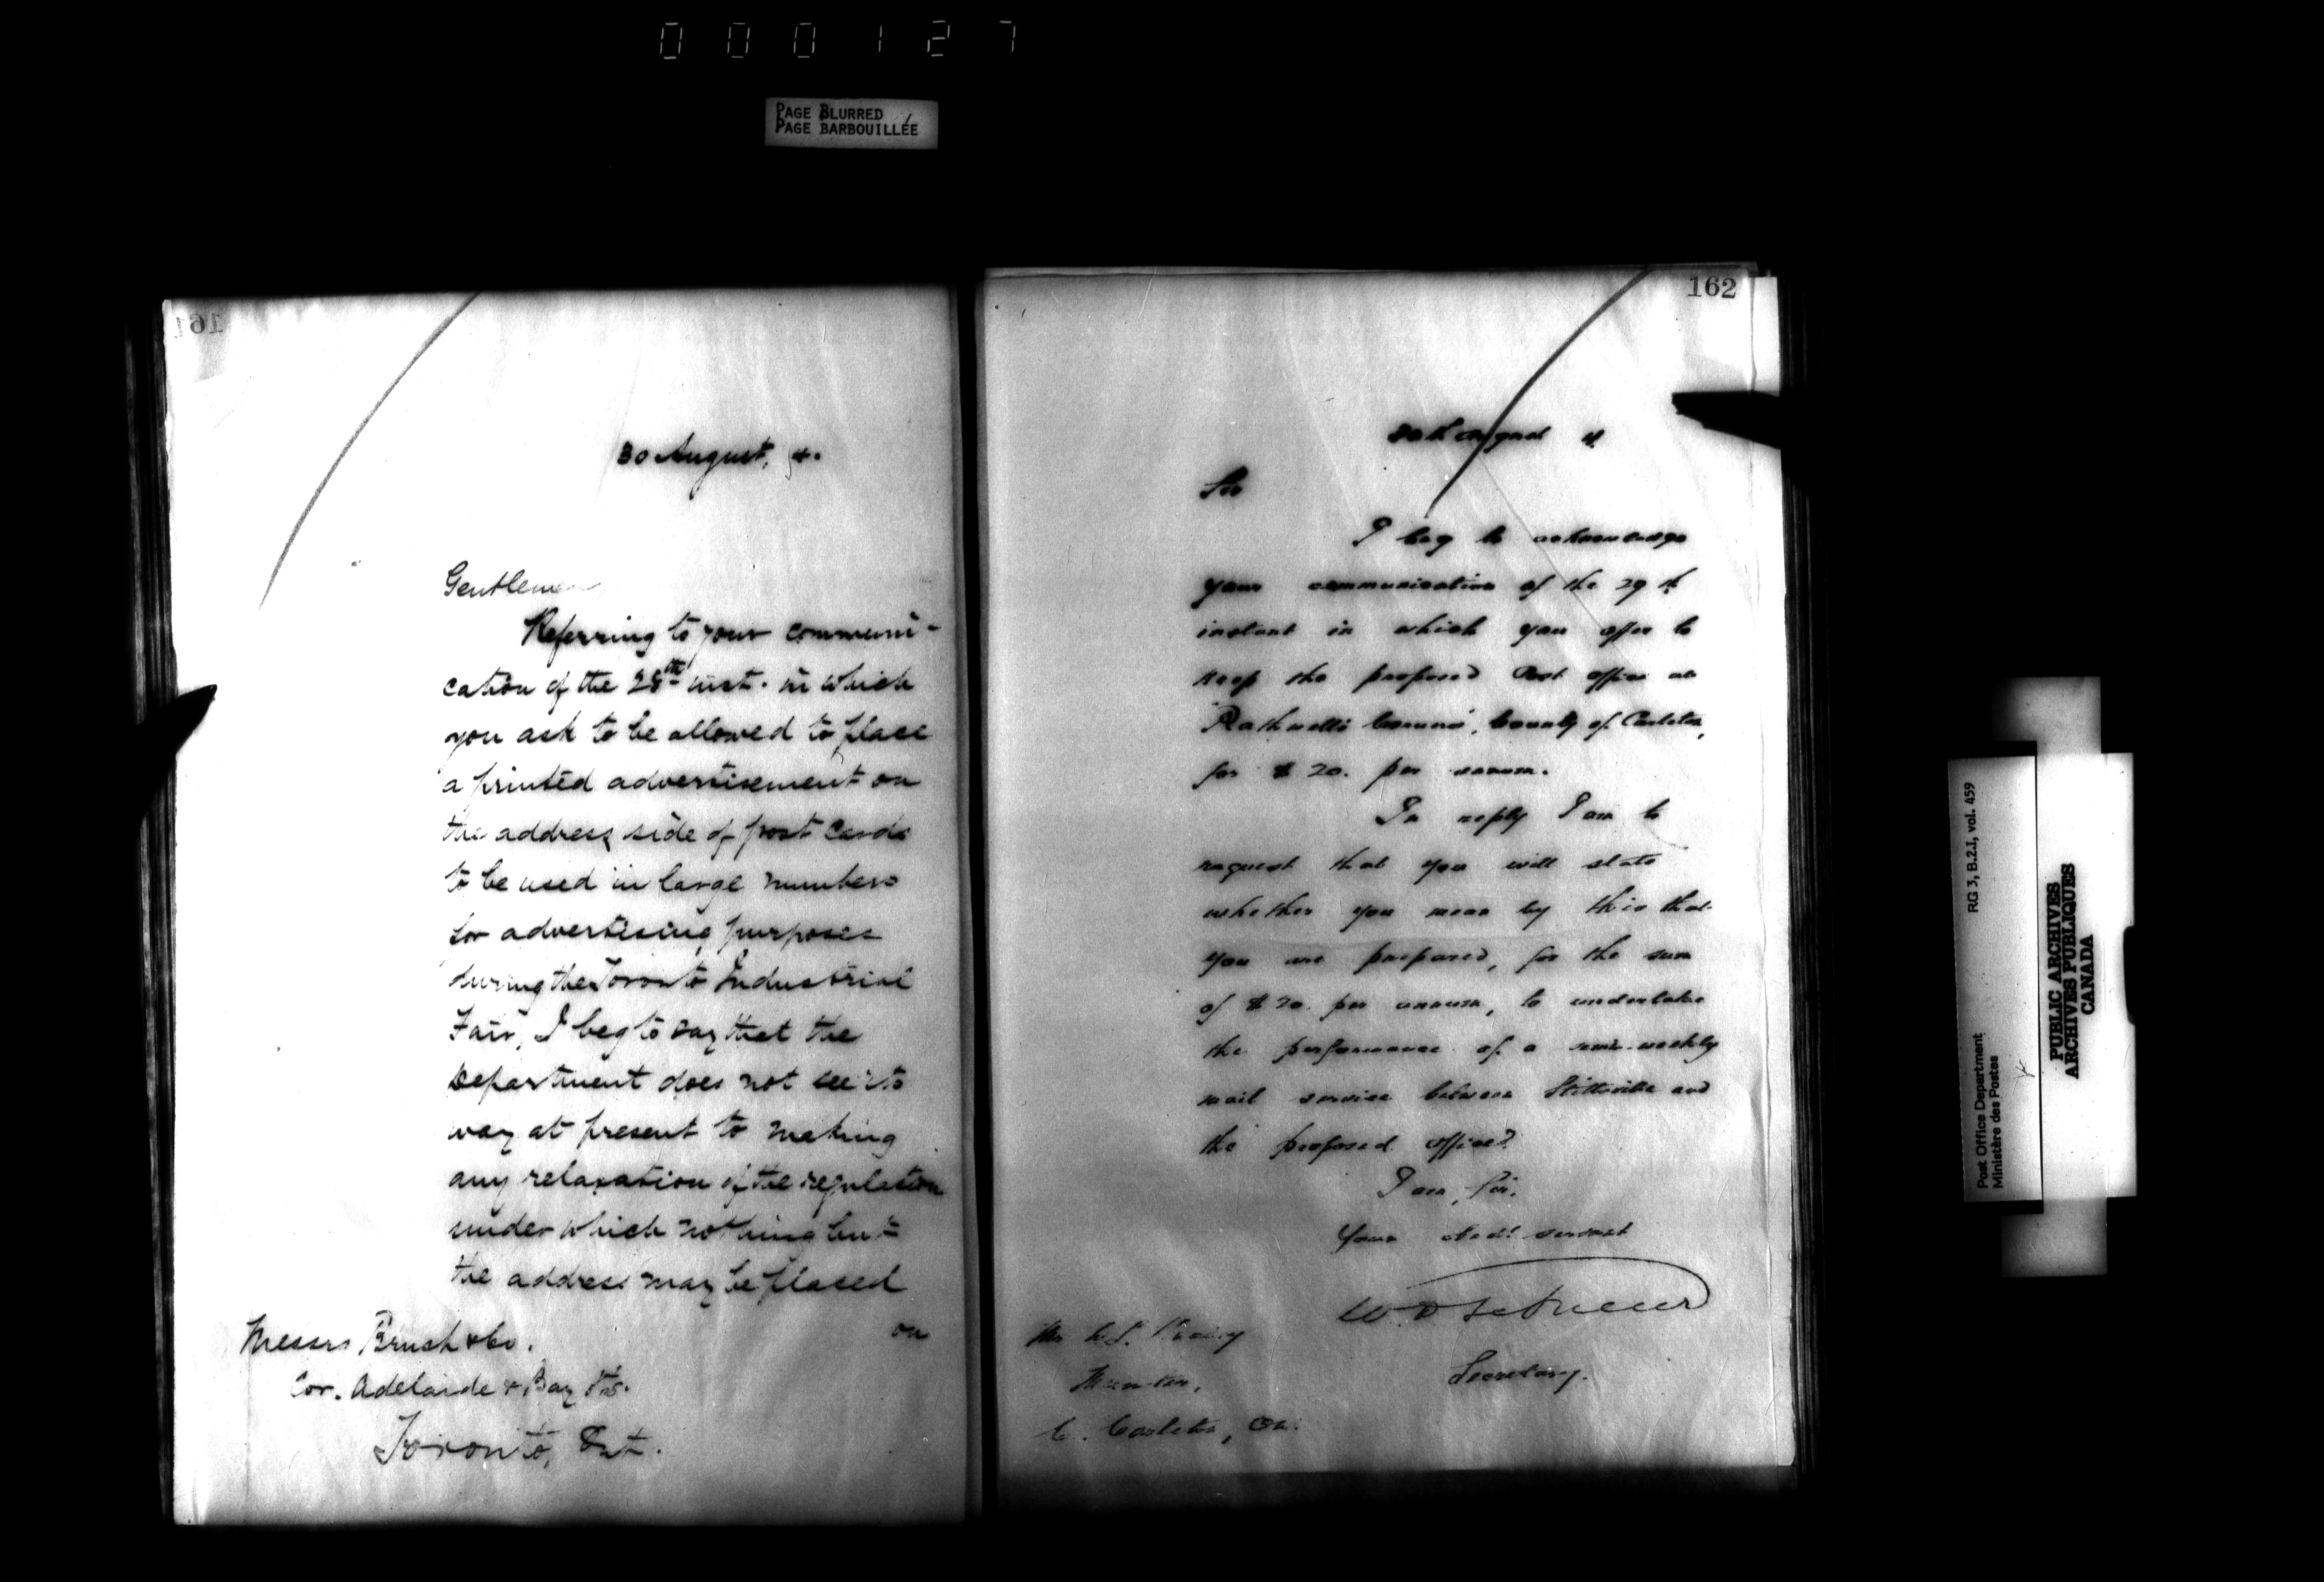 000127
PAGE BLURRED
PAGE BARBOUILLÉE
161
30 August, 4.
Gentlemen
Referring to your communi-
cation of the 28th inst. in which
you ask to be allowed to place
a printed advertisement on
the address side of post cards
to be used in large numbers
for advertising purposes
during the Toronto Industrial
Fair, I beg to say that the
Department does not see its
way at present to making
any relaxation of the regulation
under which nothing but
the address may be placed
on
Messrs Brush & Co.
Cor. Adelaide & Bay Sts.
Toronto, Ont.
162
30th August 4
Sir
I beg to acknowledge
your communication of the 29th
instant in which you offer to
keep the proposed Post office at
Rothwell's Corners, County of Carleton,
for $20. per annum.
In reply I am to
request that you will state
whether you mean by this that
you are prepared, for the sum
of $20. per annum, to undertake
the performance of a semi-weekly
mail service between Stittsville and
the proposed office?
I am, Sir,
Your obedt servant
W. D. LeSueur
Secretary.
Mr
C. Carleton, On.
RG 3, B.2.I, vol. 459
Post Office Department
Ministère des Postes
PUBLIC ARCHIVES
ARCHIVES PUBLIQUES
CANADA